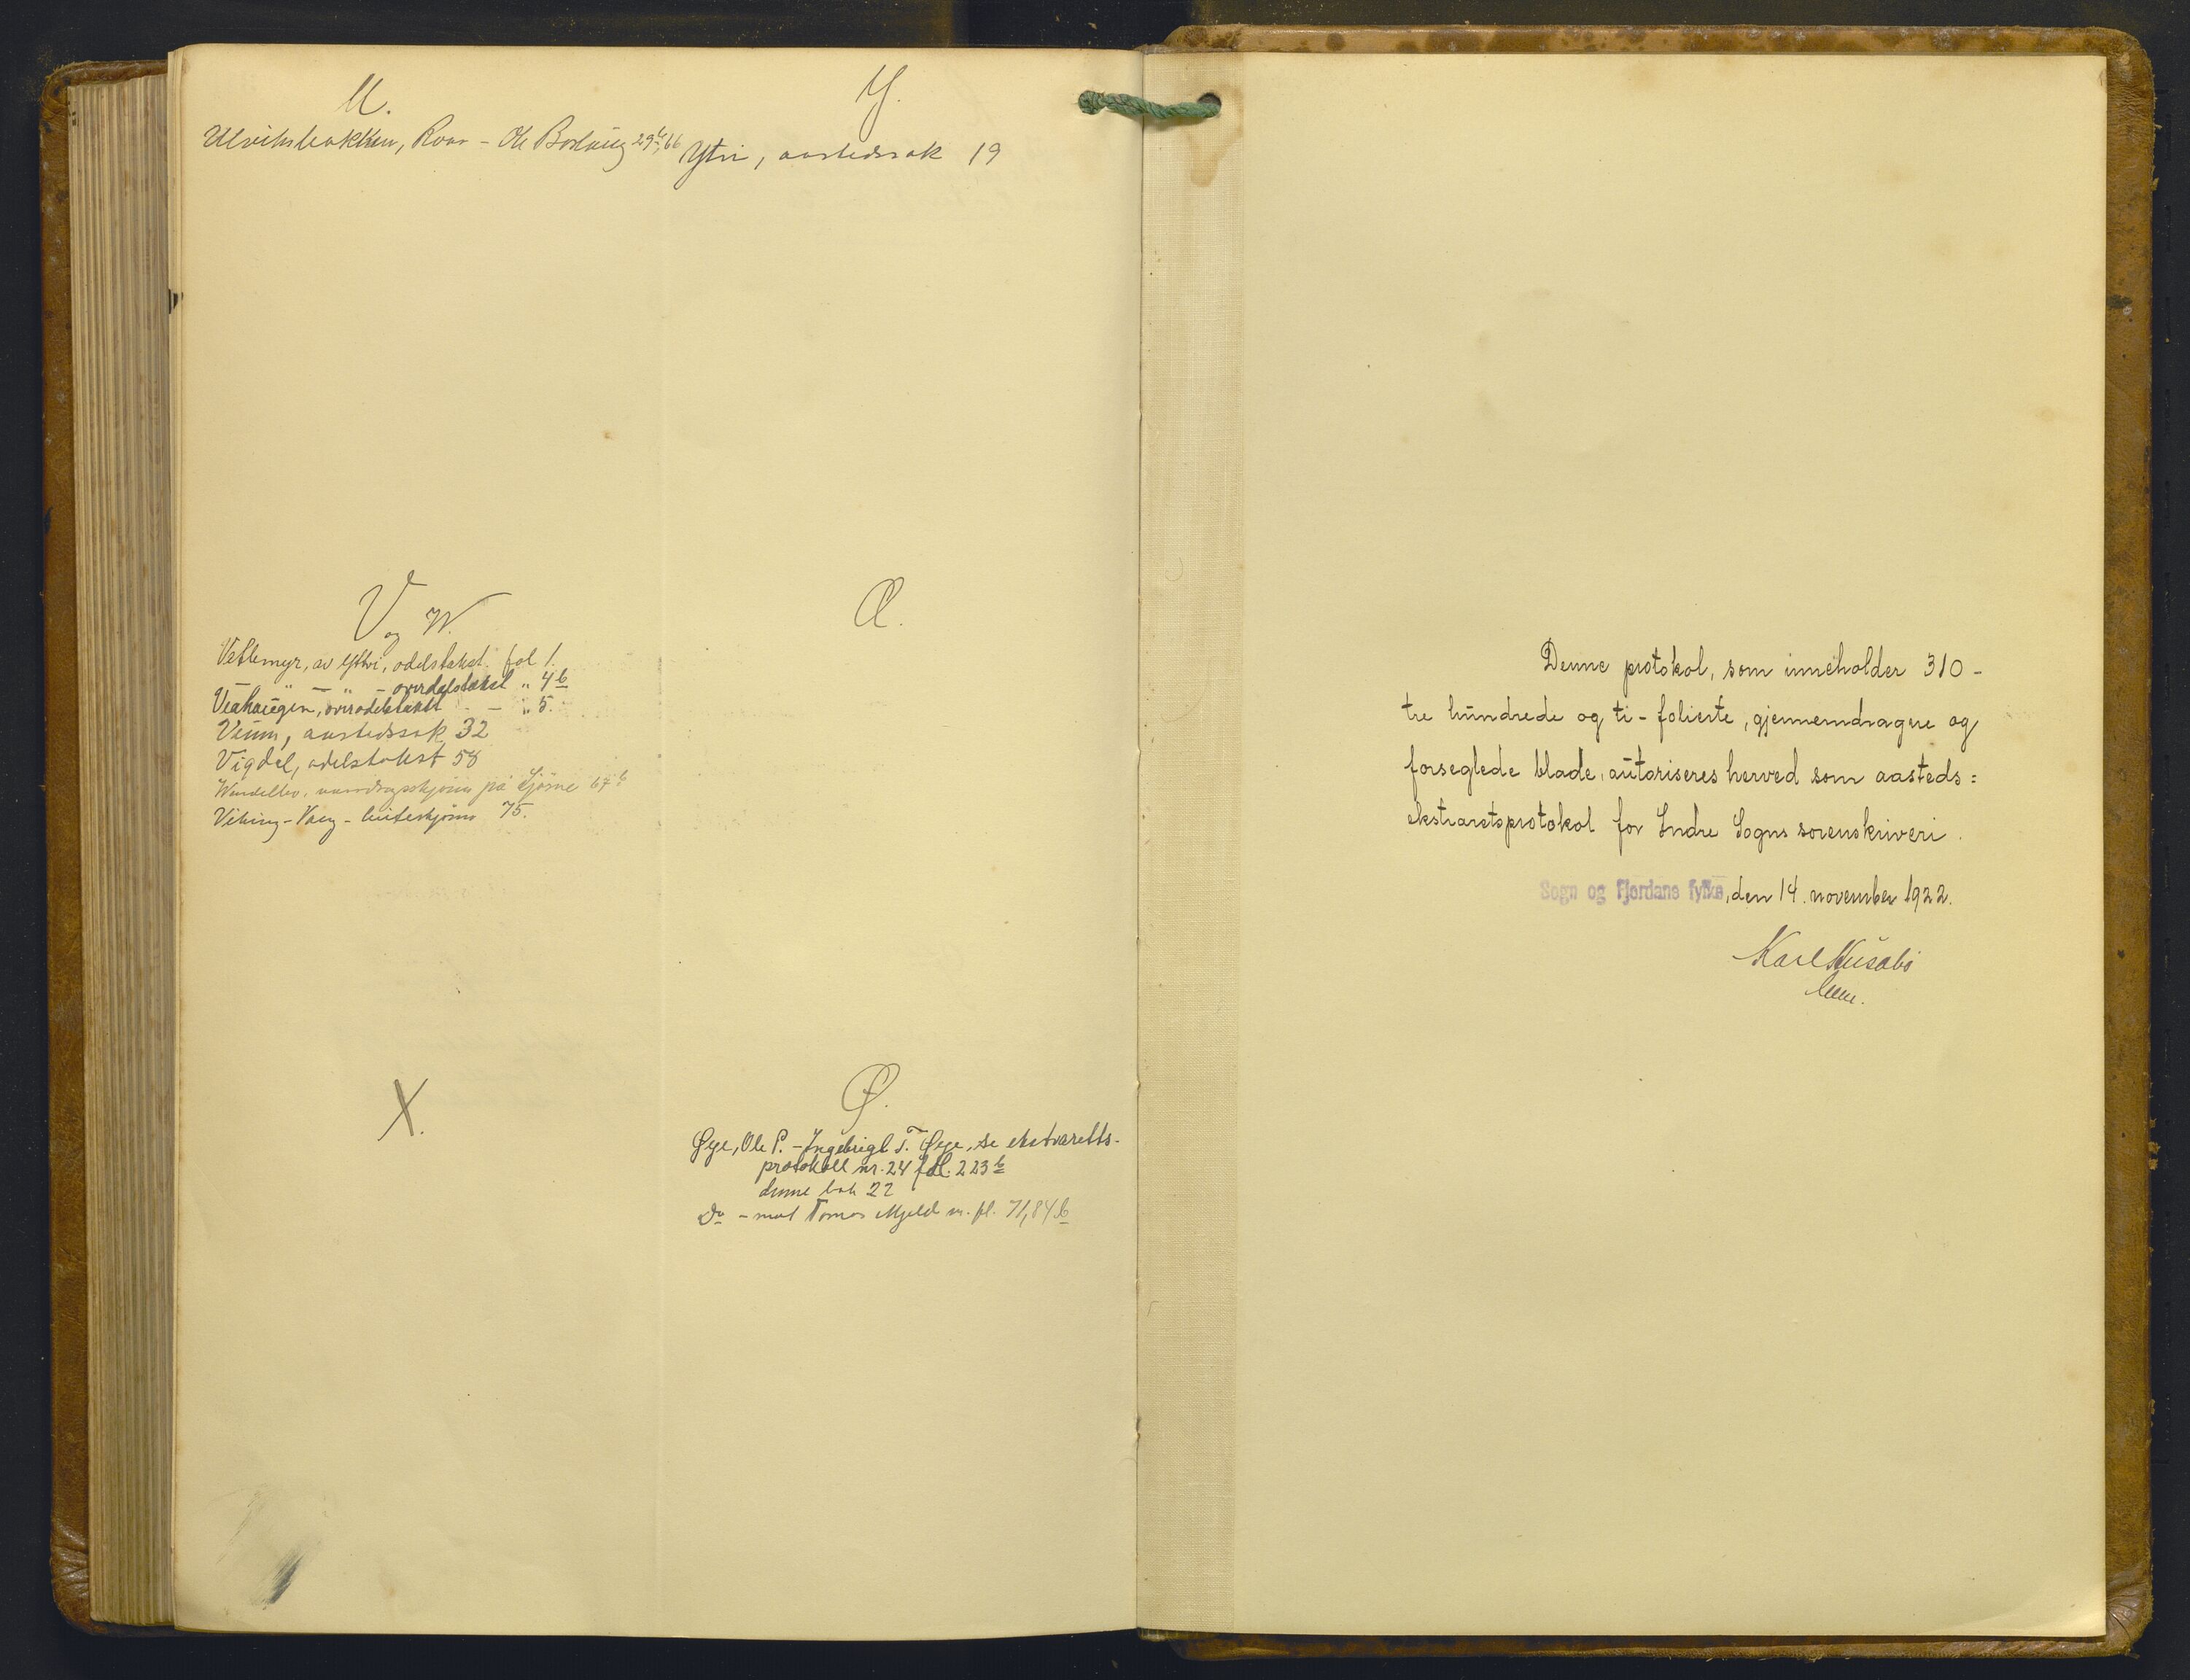 U.
Ulviksbakken, Roar - Ole Borlaug 29b, 66
V og W.
Vetlemyr, av Yttri, odelstakst. fol 1.
" — " - overodelstakst " 4b
Veahaugen, overodelstakst - — " 5.
Veum, aastedssak 32
Vigdal, odelstakst 58
vassdragsskjønn på 67b
Viking - Vaeg - 75.
X.
Y.
Ytri, aastedssak 19
Æ.
Ø.
Øye, Ole P. - Ingebrigt T. Øye, se ekstraretts-
protokoll nr. 24 fol. 223b
denne bok 22
Do - mot Tomas Mjeld m. fl. 71, 84b
Denne protokol, som inneholder 310 -
tre hundrede og ti - folierte, gjennemdragne og
forseglede blade, autoriseres herved som aasteds=
ekstraretsprotokol for Indre Sogns sorenskriveri.
Sogn og Fjordane fylke, den 14. november 1922.
Karl Husabø